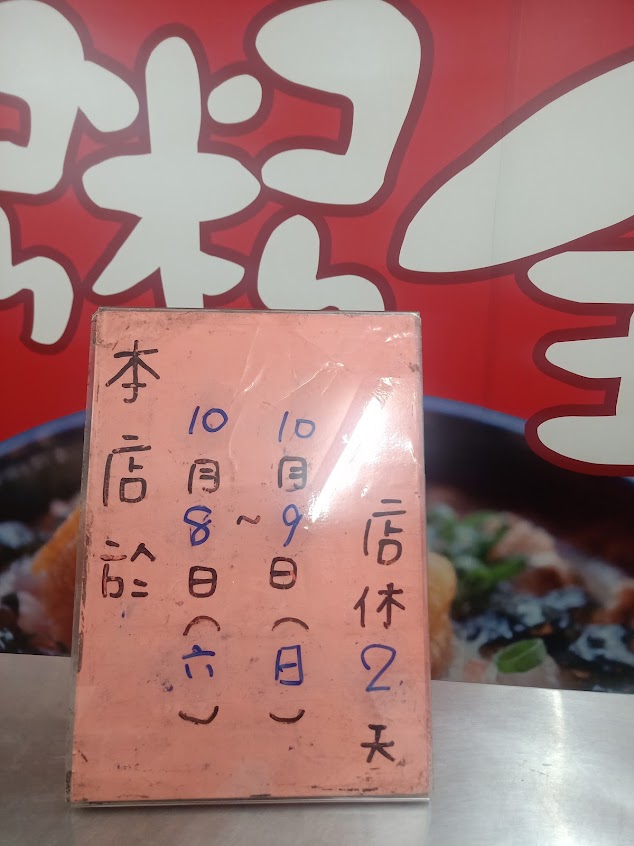 本店於
10月8日(六)
~
10月9日(日)
店休2天